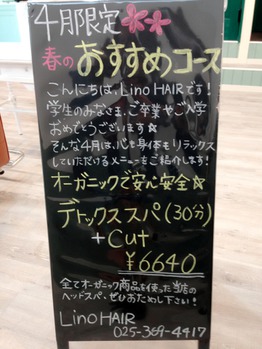 4月限定
春のおすすめコース
こんにちは、Lino HAIRです!
学生のみなさま、ご卒業やご入学
おめでとうございます☆
そんな4月は、心も身体もリラックス
していただけるメニューをご紹介します!
オーガニックで安心安全☆
デトックススパ(30分)
+Cut
¥6640
全てオーガニック商品を使った当店の
ヘッドスパ、ぜひおためし下さい!
Lino HAIR
025-369-4417